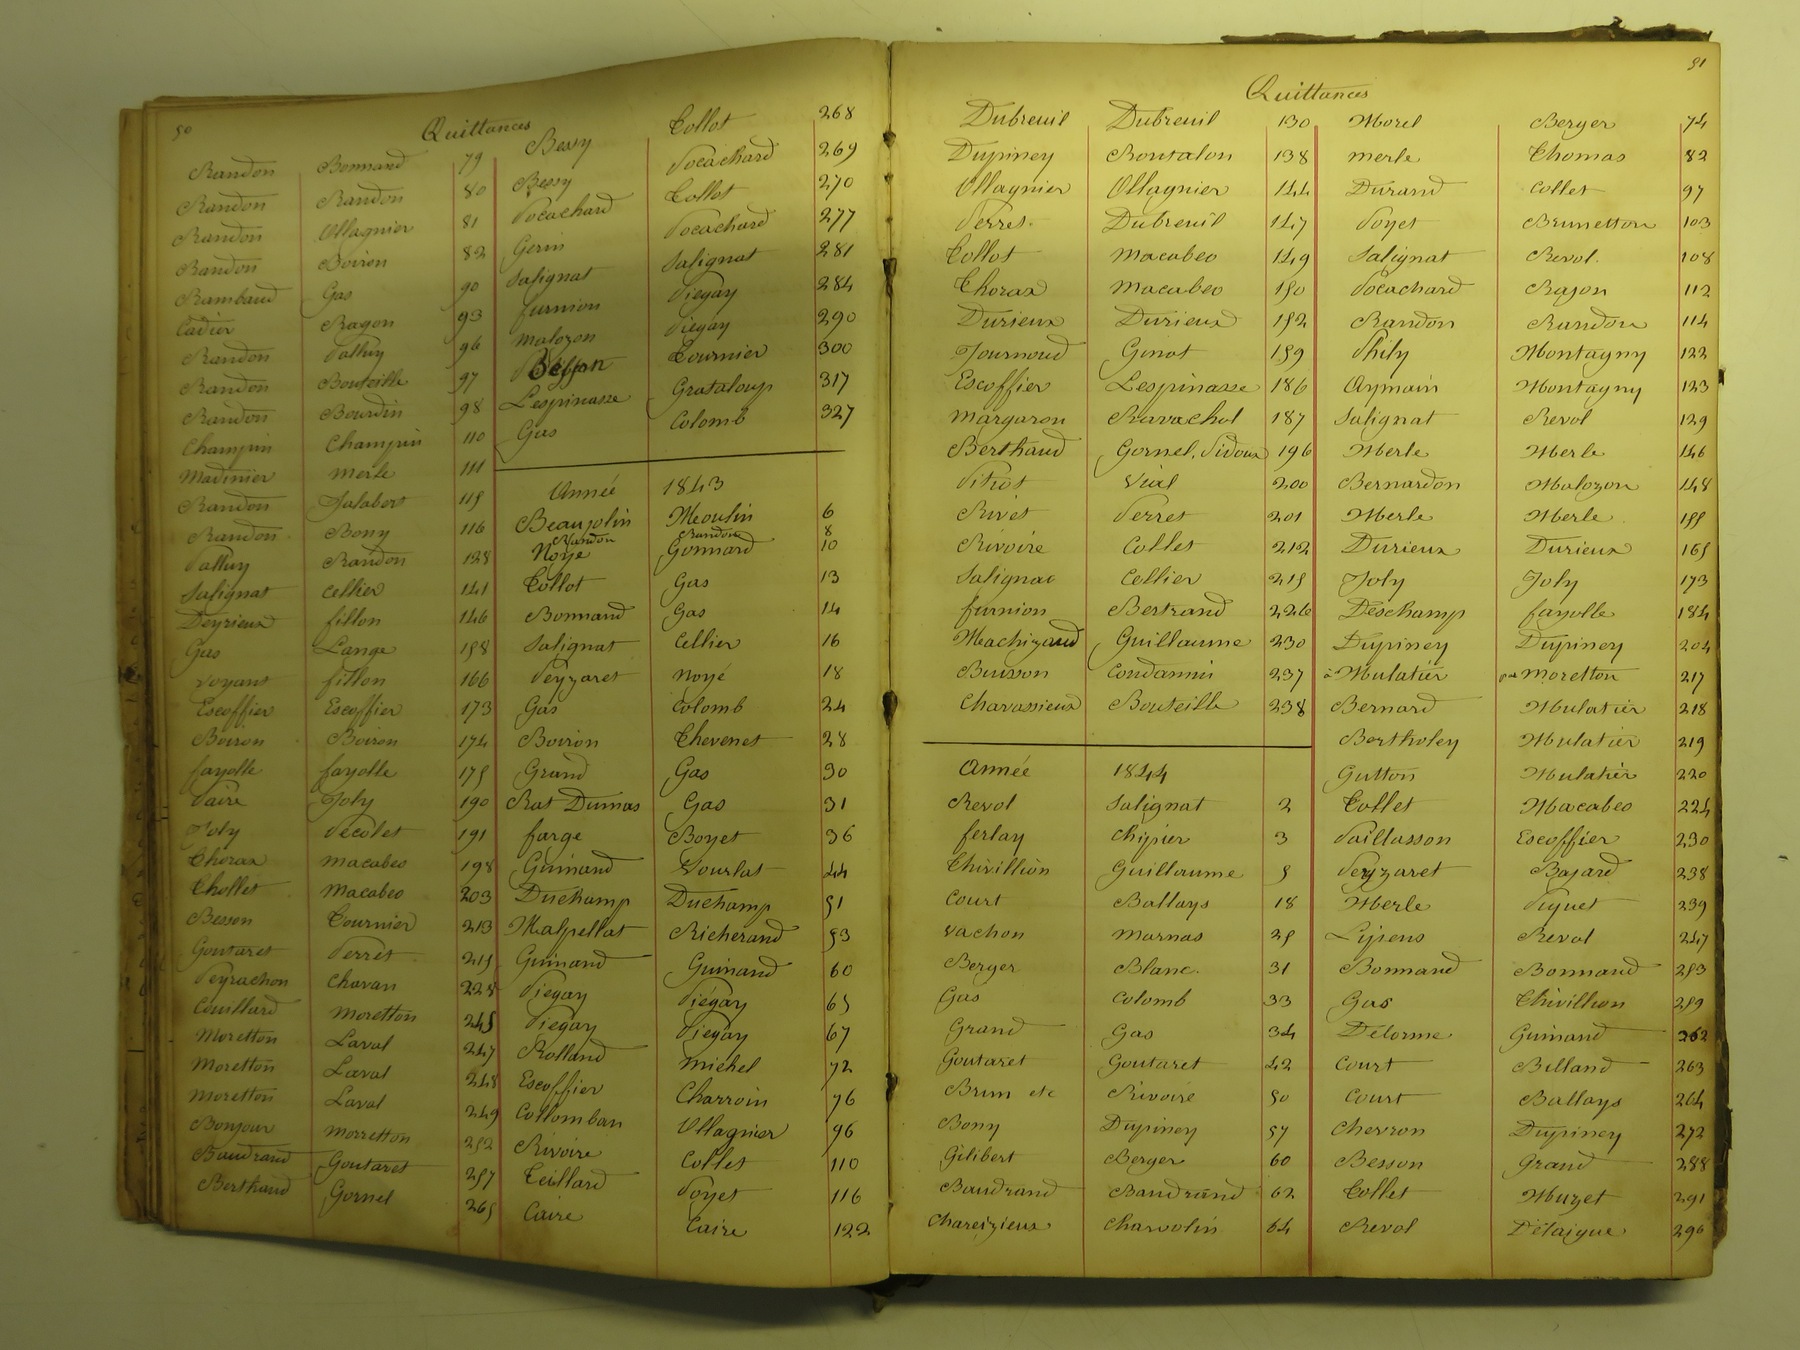 50
Quittances
Randon Bonnand 79
Randon Randon 80
Randon Ollagnier 81
Randon Boiron 82
Rambaud Gas 90
Cadier Ragon 93
Randon Palluy 96
Randon Bouteille 97
Randon Bourdin 98
Champin Champin 110
Madinier Merle 111
Randon Jalabert 115
Randon Bony 116
Palluy Randon 128
Salignat Cellier 141
Deyrieux fillon 146
Gas Lange 158
Voyant fillon 166
Escoffier Escoffier 173
Boiron Boiron 174
fayolle fayolle 175
Paire Joly 190
Joly Pécolet 191
Thorax Macabeo 198
Chollet Macabeo 203
Besson Tournier 213
Goutaret Perret 215
Peyrachon Chavan 228
Couillard Moretton 245
Moretton Laval 247
Moretton Laval 248
Moretton Laval 249
Bonjour Morretton 252
Baudrand Goutaret 257
Berthaud Gornel 265
Bessy Collot 268
Bessy Pocachard 269
Pocachard Collot 270
Gerin Pocachard 277
Salignat Salignat 281
furnion Piegay 284
Malozon Piegay 290
Besson Tournier 300
Lespinasse Grataloup 317
Gas Colomb 327
Année 1843
Beaujolin Moulin 6
Randon Randon 8
Noyé Gonnard 10
Collot Gas 13
Bonnand Gas 14
Salignat Cellier 16
Peyzaret Noyé 18
Gas Colomb 24
Boiron Thevenet 28
Grand Gas 30
Rat Dumas Gas 31
farge Boyet 36
Guinand Vourlat 44
Duchamp Duchamp 51
Malpellat Richerand 53
Guinand Guinand 60
Piegay Piégay 65
Piegay Piegay 67
Rolland Michel 72
Escoffier Charroin 76
Collomban Ollagnier 96
Rivoire Collet 110
Teillard Poyet 116
Caire Caire 122
51
Quittances
Dubreuil Dubreuil 130
Dupiney Rontalon 138
Ollagnier Ollagnier 144
Perret Dubreuil 147
Collot Macabeo 149
Thorax Macabeo 150
Durieux Durieux 152
Journoud Ginot 159
Escoffier Lespinasse 186
Margaron Ravachol 187
Berthaud Gornel, Pidoux 196
Pitiot Vial 200
Rivet Perret 201
Rivoire Collet 212
Salignat Cellier 215
furnion Bertrand 226
Machizaud Guillaume 230
Buisson Condamin 237
Chavassieux Bouteille 238
Année 1844
Revol Salignat 2
ferlay Chipier 3
Thivillion Guillaume 5
Court Ballays 18
Vachon Marnas 25
Berger Blanc 31
Gas Colomb 33
Grand Gas 34
Goutaret Goutaret 42
Brun etc Rivoire 50
Bony Dupiney 57
Gilibert Berger 60
Baudrand Baudrand 62
Chareizieux Charvolin 64
Morel Berger 74
Merle Thomas 82
Durand Collet 97
Poyet Brunetton 103
Salignat Revol 108
Pocachard Rajon 112
Randon Randon 114
Phily Montagny 122
Aymain Montagny 123
Salignat Revol 129
Merle Merle 146
Bernardon Malozon 148
Merle Merle 155
Durieux Durieux 165
Joly Joly 173
Deschamp fayolle 184
Dupiney Dupiney 204
à Mulatier par Moretton 217
Bernard Mulatier 218
Bertholey Mulatier 219
Gutton Mulatier 220
Collet Macabeo 224
Paillasson Escoffier 230
Peyzaret Bajard 238
Merle Piquet 239
Lipens Revol 247
Bonnand Bonnand 253
Gas Thivillion 259
Délorme Guinand 262
Court Billand 263
Court Ballays 264
Chevron Dupiney 272
Besson Grand 288
Collet Muzet 291
Revol Délaigue 296